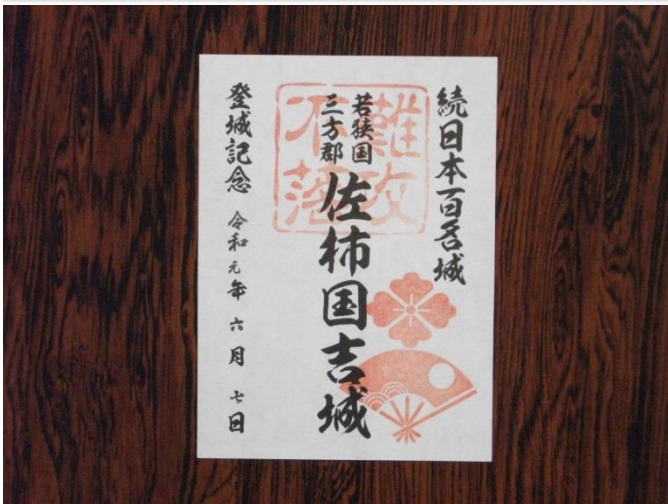 続日本百名城
難攻
不落
若狭国
三方郡
佐柿国吉城
登城記念 令和元年 六月 七日